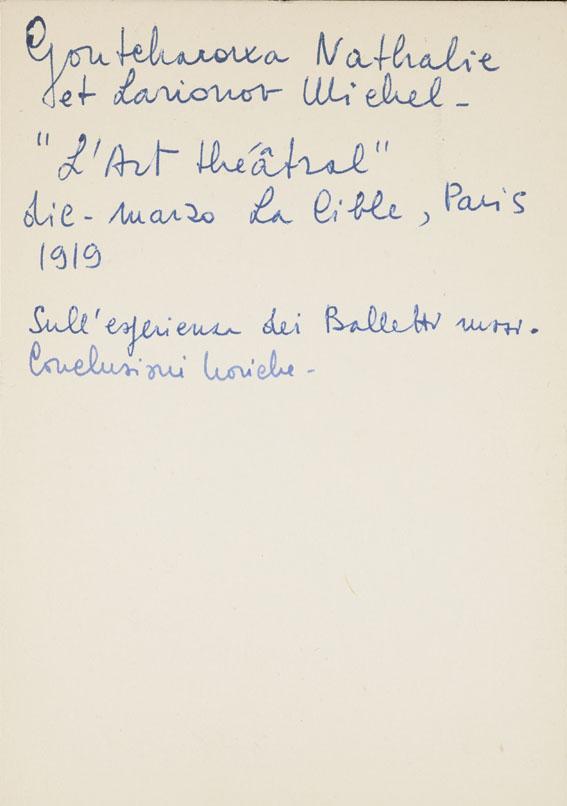 Gontcharova Nathalie
et Larionov Michel -
"L'Art théâtral"
dic - marzo La Cible, Paris
1919
Sull'esperienza dei Balletti russi.
Conclusioni teoriche -